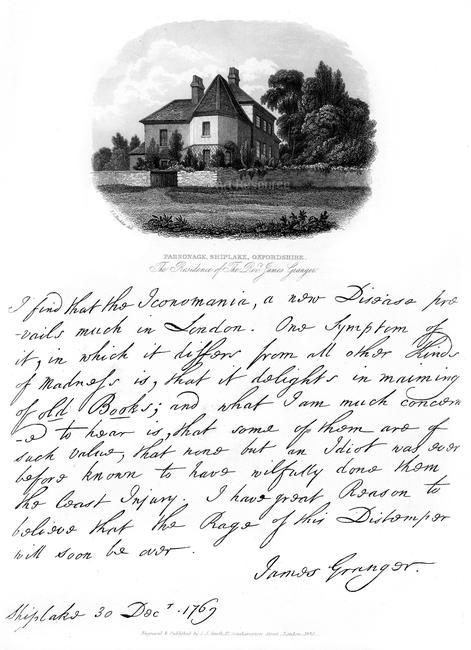 PARSONAGE, SHIPLAKE, OXFORDSHIRE.
The Residence of The Revd. James Granger.
I find that the Iconomania, a new Disease pre
-vails much in London. One Symptom of
it, in which it differs from all other Kinds
of Madness is, that it delights in maiming
of old Books; and what I am much concern
-ed to hear is, that some of them are of
such value, that none but an Idiot was ever
before known to have wilfully done them
the least Injury. I have great Reason to
believe that the Rage of this Distemper
will soon be over.
James Granger.
Shiplake 30 Decr. 1769
Engraved & Published by
London,